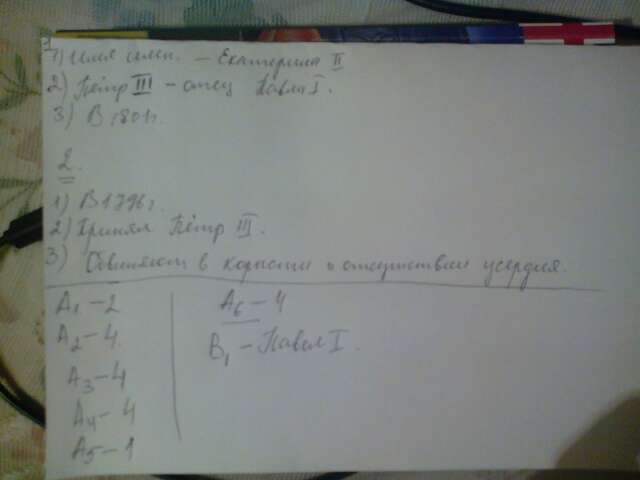 1) Имя имп. - Екатерина II
2) Пётр III - отец Павла I.
3) В 1801г.
2.
1) В 1796г.
2) Принял Пётр III.
3) Обвиняют в корысти и отсутствии усердия.
A1 - 2
A2 - 4.
A3 - 4
A4 - 4
A5 - 1
A6 - 4
B1 - Павел I.